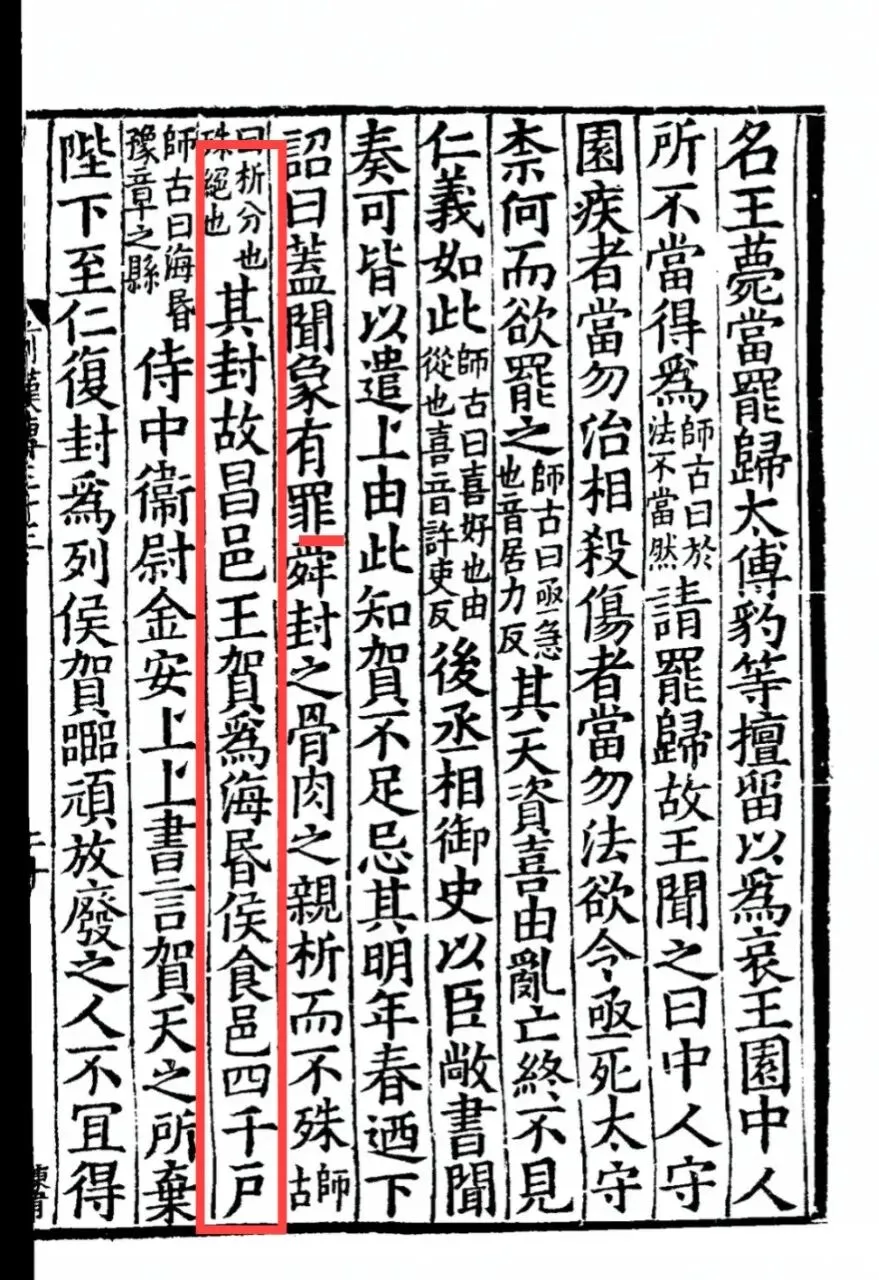 名王薨當罷歸太傅豹等擅留以爲哀王園中人
所不當得爲師古曰於法不當然請罷歸故王聞之曰中人守
園疾者當勿治相殺傷者當勿法欲令亟死太守
柰何而欲罷之師古曰亟急也音居力反其天資喜由亂亡終不見
仁義如此師古曰喜好也由從也喜音許吏反後丞相御史以臣敞書聞
奏可皆以遣上由此知賀不足忌其明年春迺下
詔曰蓋聞象有罪舜封之骨肉之親析而不殊師古
曰析分也殊絕也其封故昌邑王賀爲海昬侯食邑四千戶
師古曰海昬豫章之縣侍中衞尉金安上上書言賀天之所棄
陛下至仁復封爲列侯賀嚚頑放廢之人不宜得